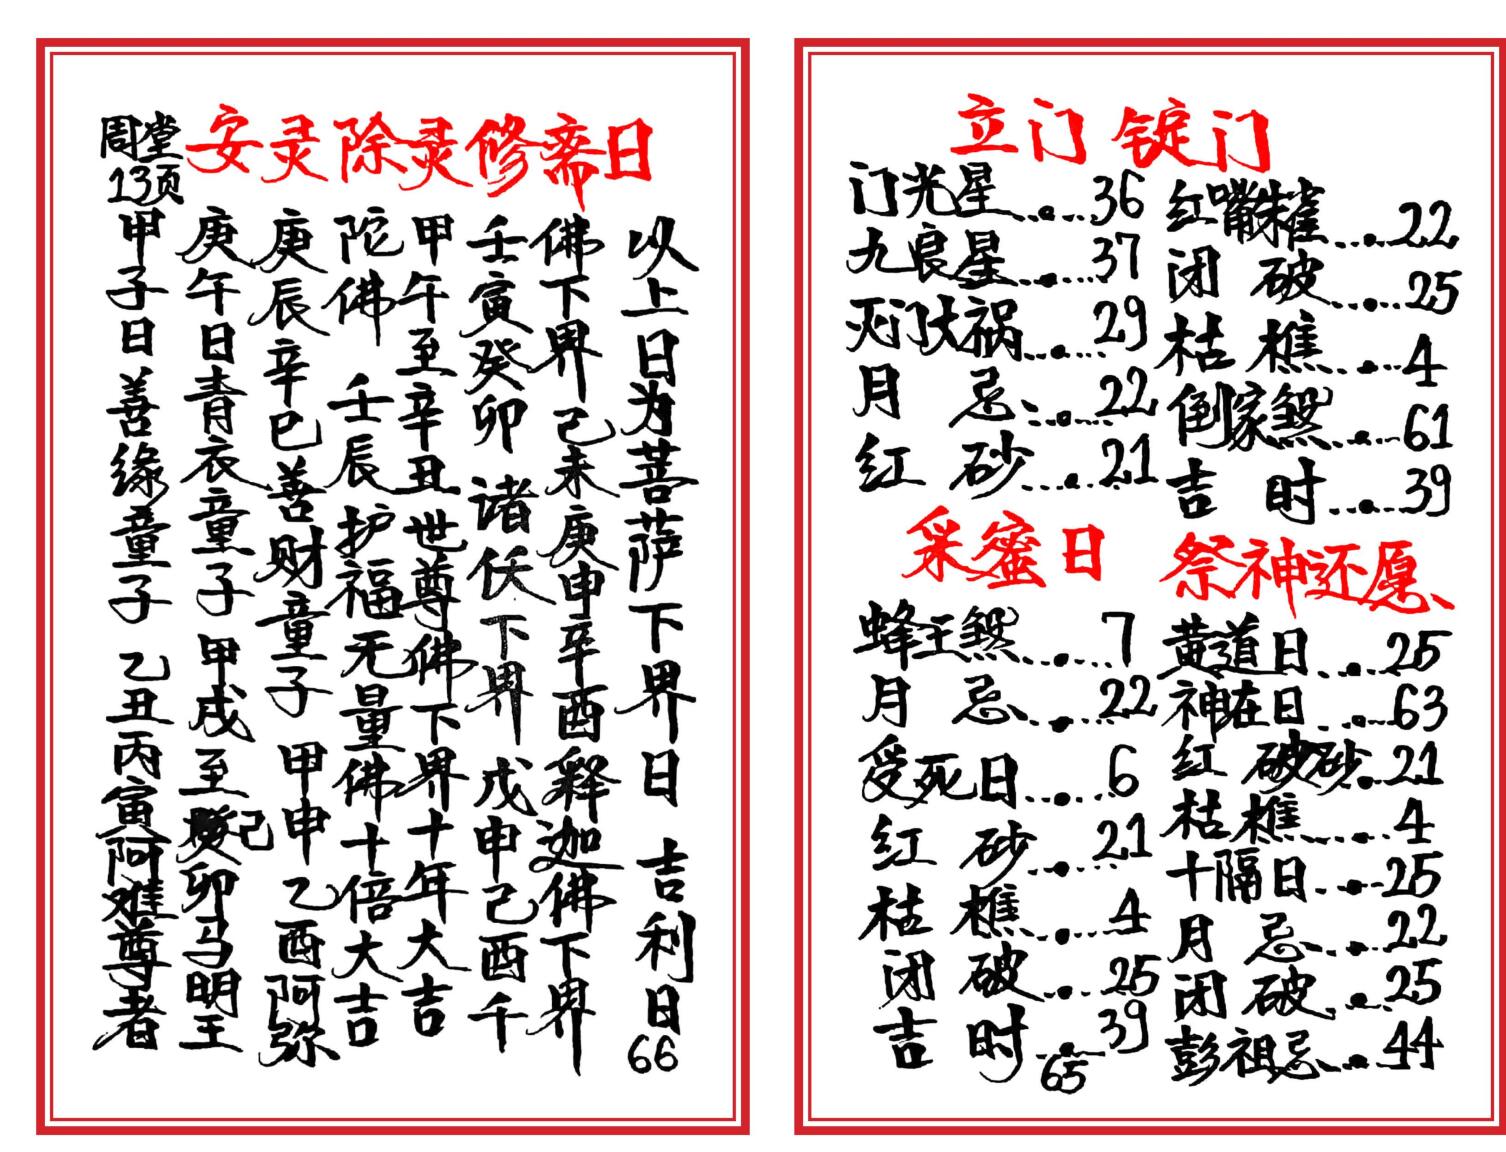 周堂
13页
安灵除灵修斋日
甲子日善缘童子 乙丑丙寅阿难尊者
庚午日青衣童子 甲戌至己卯马明王
庚辰辛巳善财童子 甲申乙酉阿弥
陀佛 壬辰护福无量佛十倍大吉
甲午至辛丑世尊佛下界十年大吉
壬寅癸卯 诸伏下界 戊申己酉千
佛下界己未庚申辛酉释迦佛下界
以上日为菩萨下界日 吉利日
66
立门 锭门
门光星……36
九良星……37
灭门大祸……29
月 忌……22
红 砂……21
红嘴朱雀……22
闭 破……25
枯 樵……4
倒家煞……61
吉 时……39
采蜜日
蜂王煞……7
月 忌……22
受死日……6
红 砂……21
枯 樵……4
闭 破……25
吉 时……39
祭神还愿
黄道日……25
神在日……63
红 破砂……21
枯樵……4
十隔日……25
月 忌……22
闭 破……25
彭祖忌……44
65